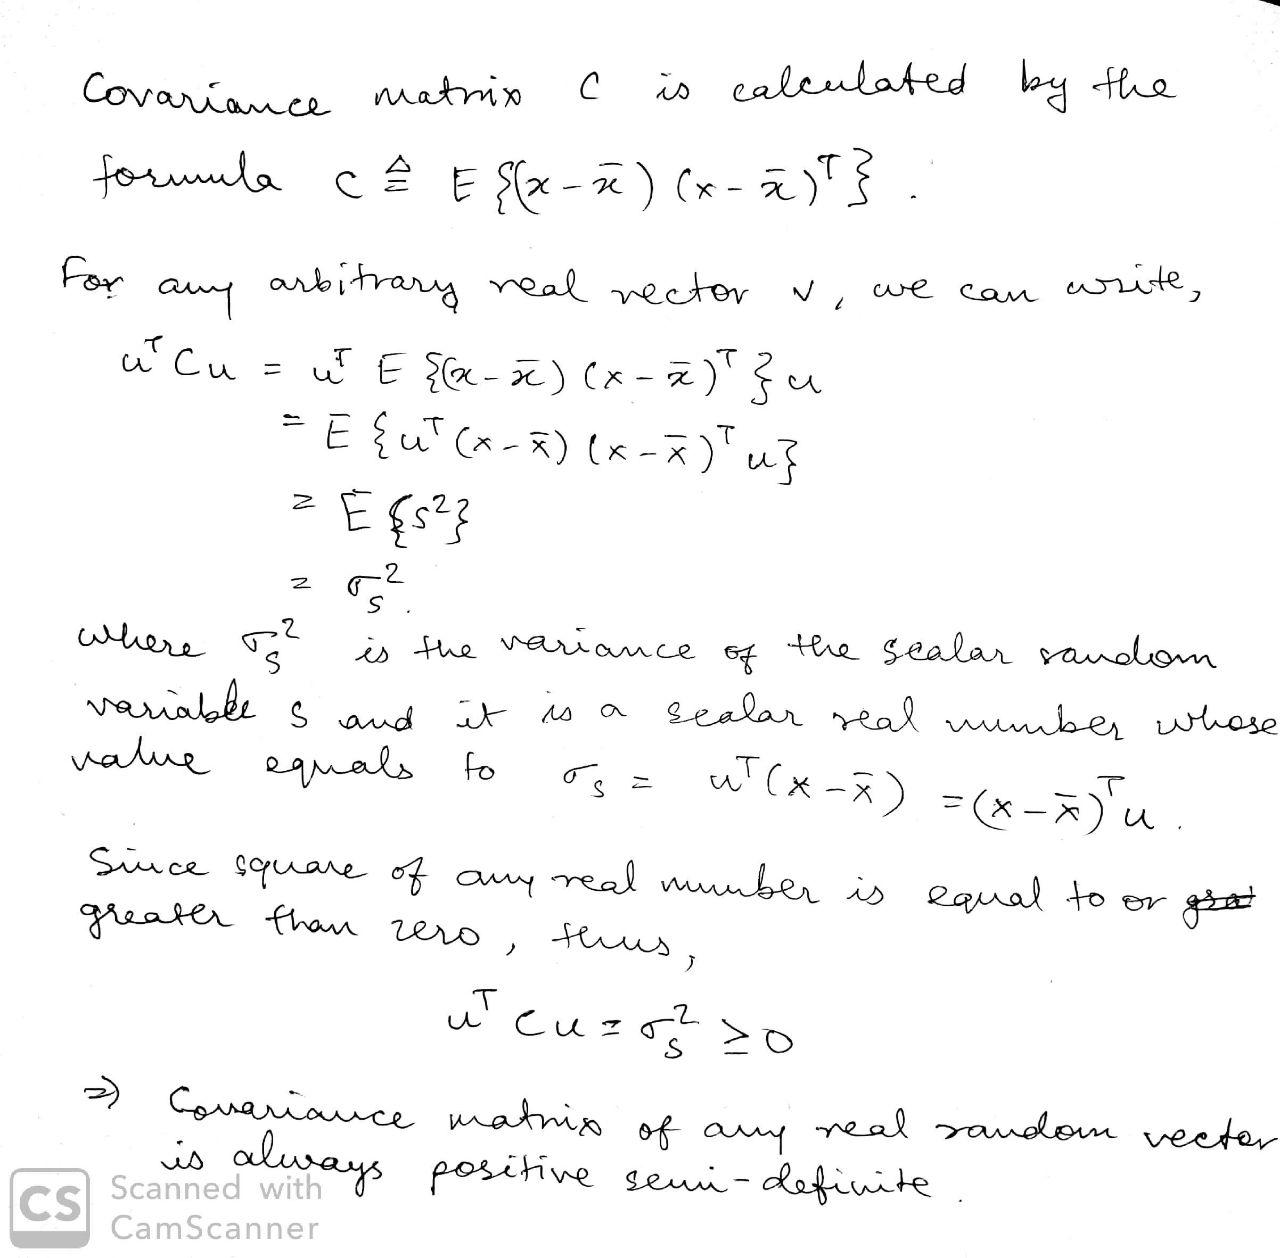 Covariance matrix C is calculated by the
formula C ≜ E {(x - x̄) (x - x̄)ᵀ} .
For any arbitrary real vector v, we can write,
uᵀ C u = uᵀ E {(x - x̄) (x - x̄)ᵀ} u
= E {uᵀ (x - x̄) (x - x̄)ᵀ u}
= E {s²}
= σₛ² .
where σₛ² is the variance of the scalar random
variable s and it is a scalar real number whose
value equals to σₛ = uᵀ (x - x̄) = (x - x̄)ᵀ u .
Since square of any real number is equal to or
greater than zero , thus ,
uᵀ C u = σₛ² ≥ 0
⇒ Covariance matrix of any real random vector
is always positive semi-definite .
CS Scanned with
CamScanner